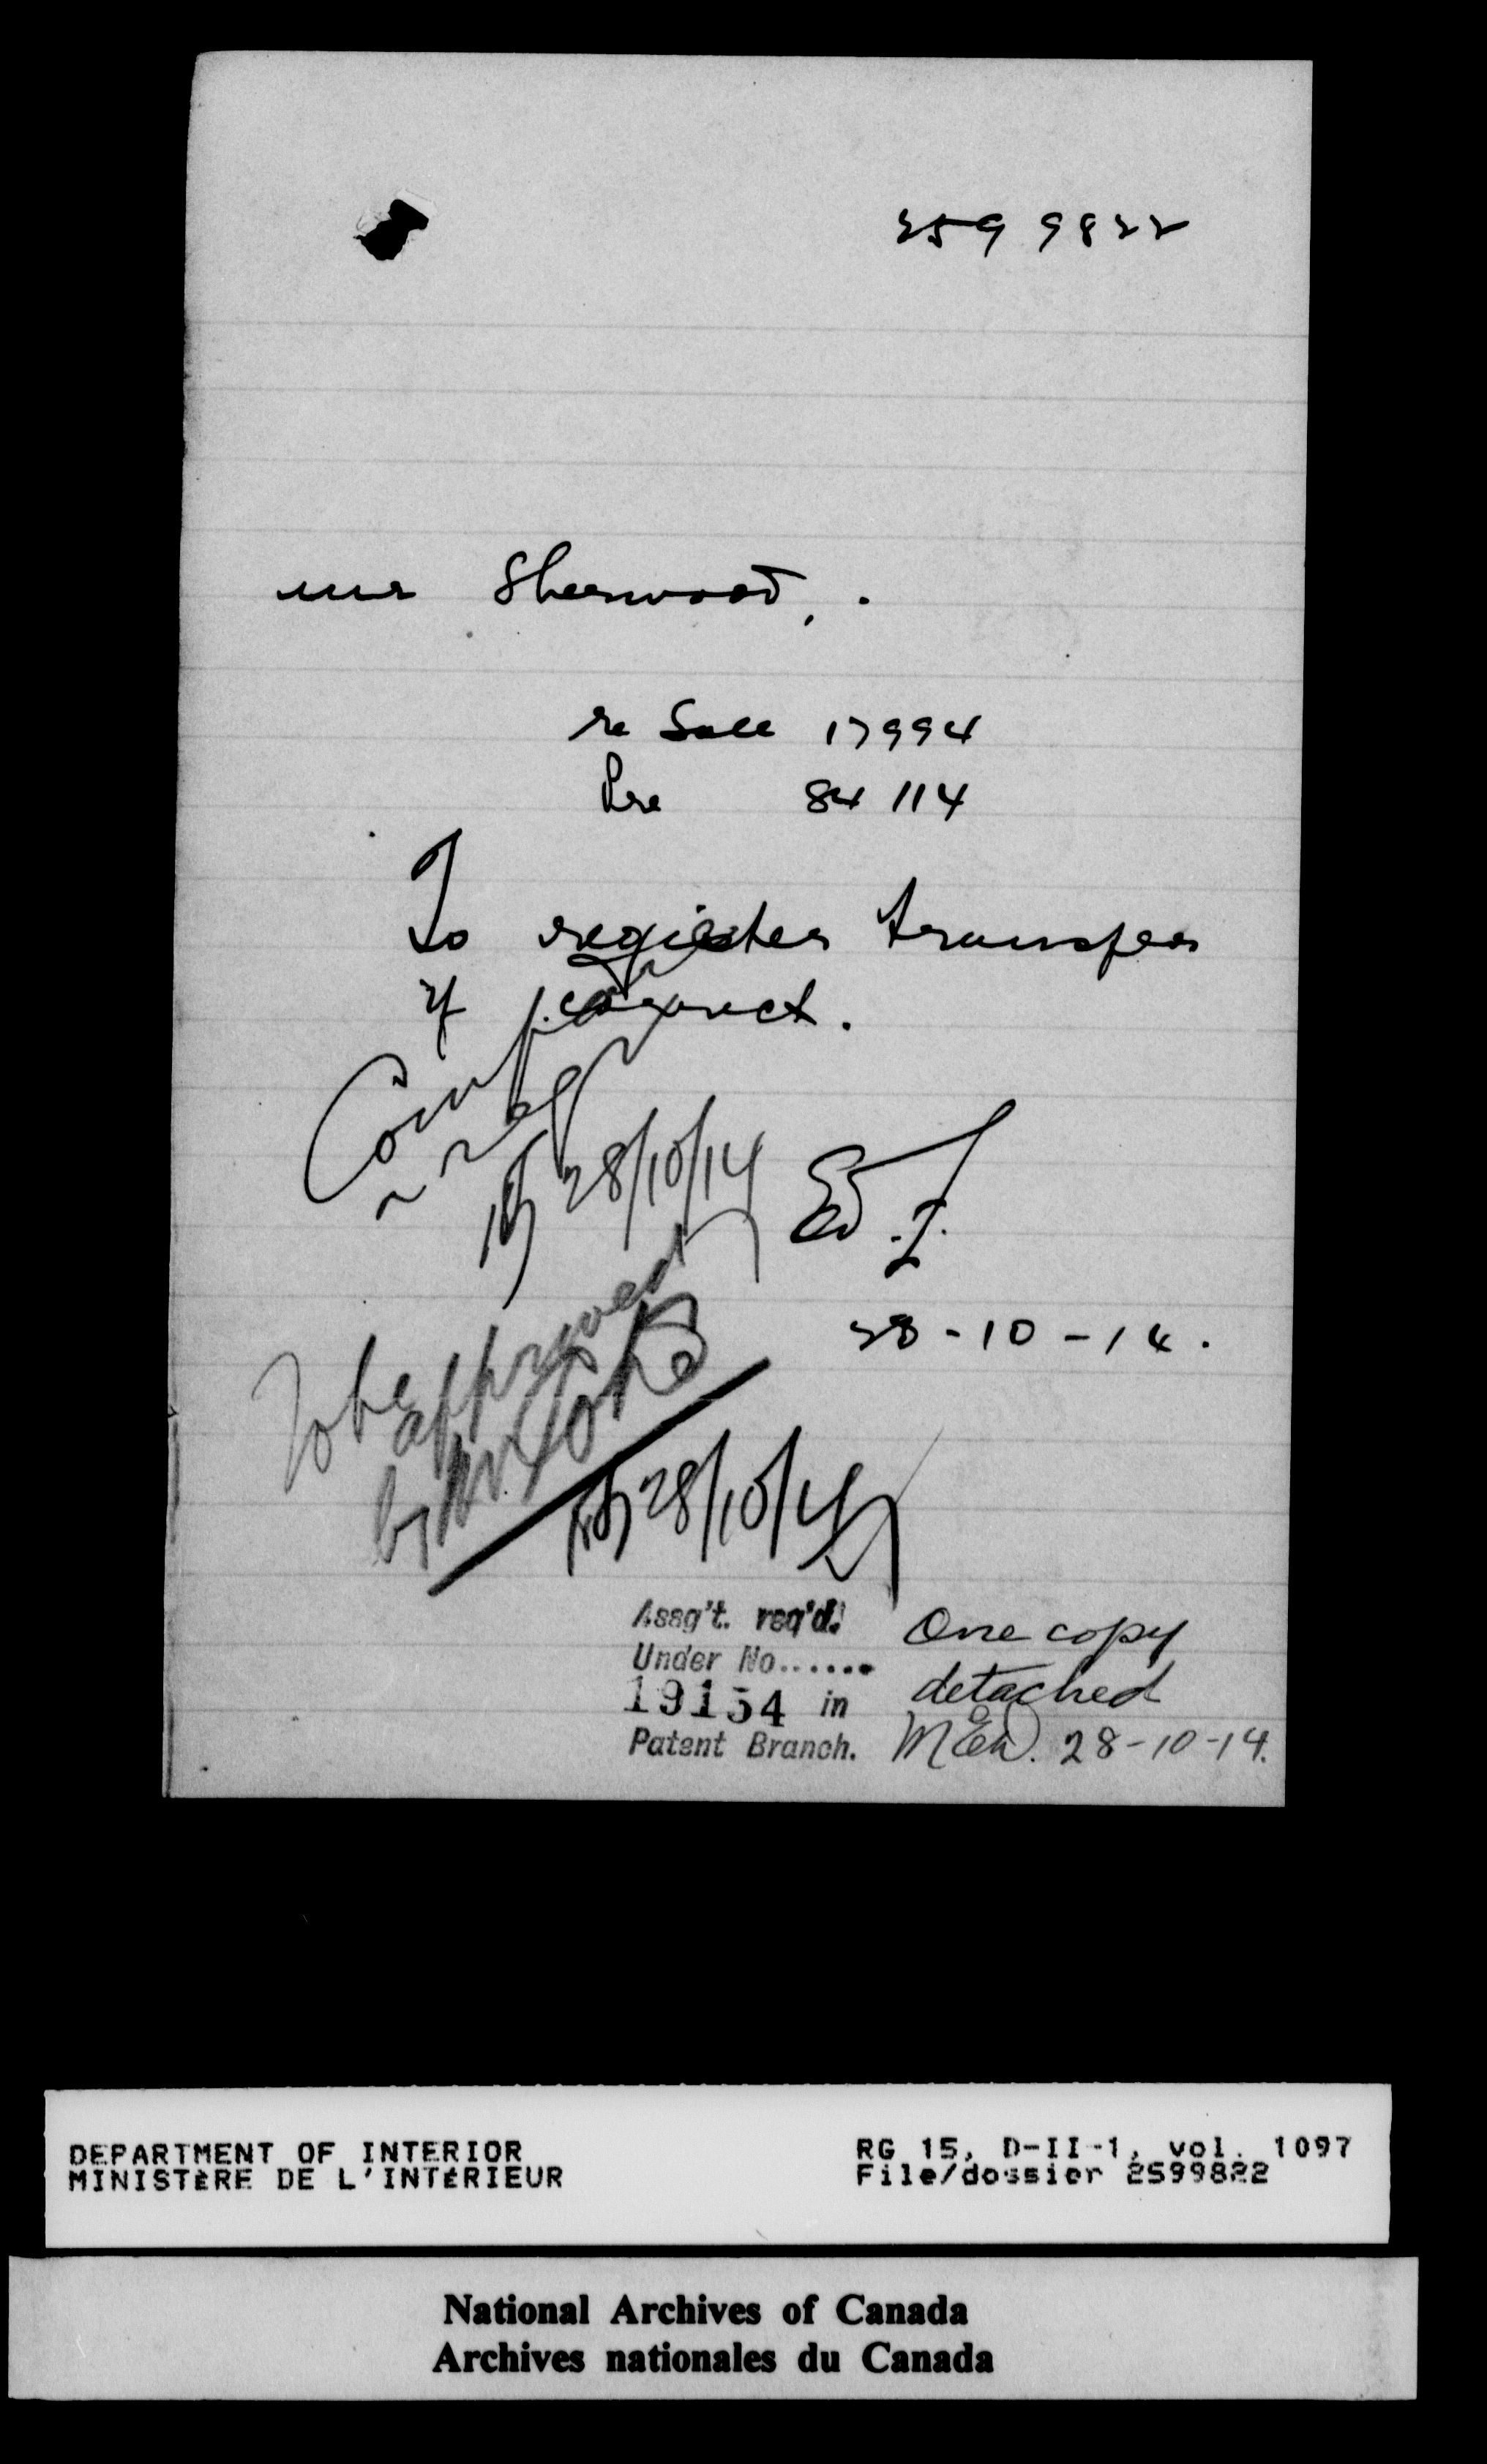 2599822
Mr Sherwood,
re Sale 17994
Pre 84114
To register transfer
if correct.
28/10/14
28-10-14.
To be
approved
by Mr
28/10/14
Assg't. req'd.
Under No......
19154 in
Patent Branch.
One copy
detached
28-10-14.
DEPARTMENT OF INTERIOR
MINISTÈRE DE L'INTÉRIEUR
RG 15, D-II-1, vol. 1097
File/dossier 2599822
National Archives of Canada
Archives nationales du Canada